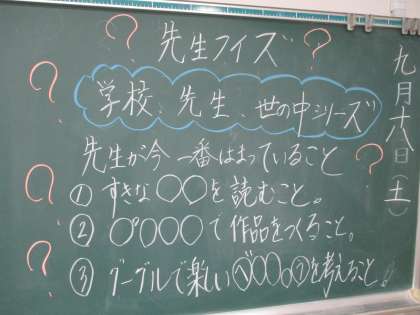 先生クイズ
学校、先生、世の中シリーズ
先生が今一番はまっていること
① すきな○○を読むこと。
② ○○○○で作品をつくること。
③ グーグルで楽しい
を考えること!
九月六日(土)